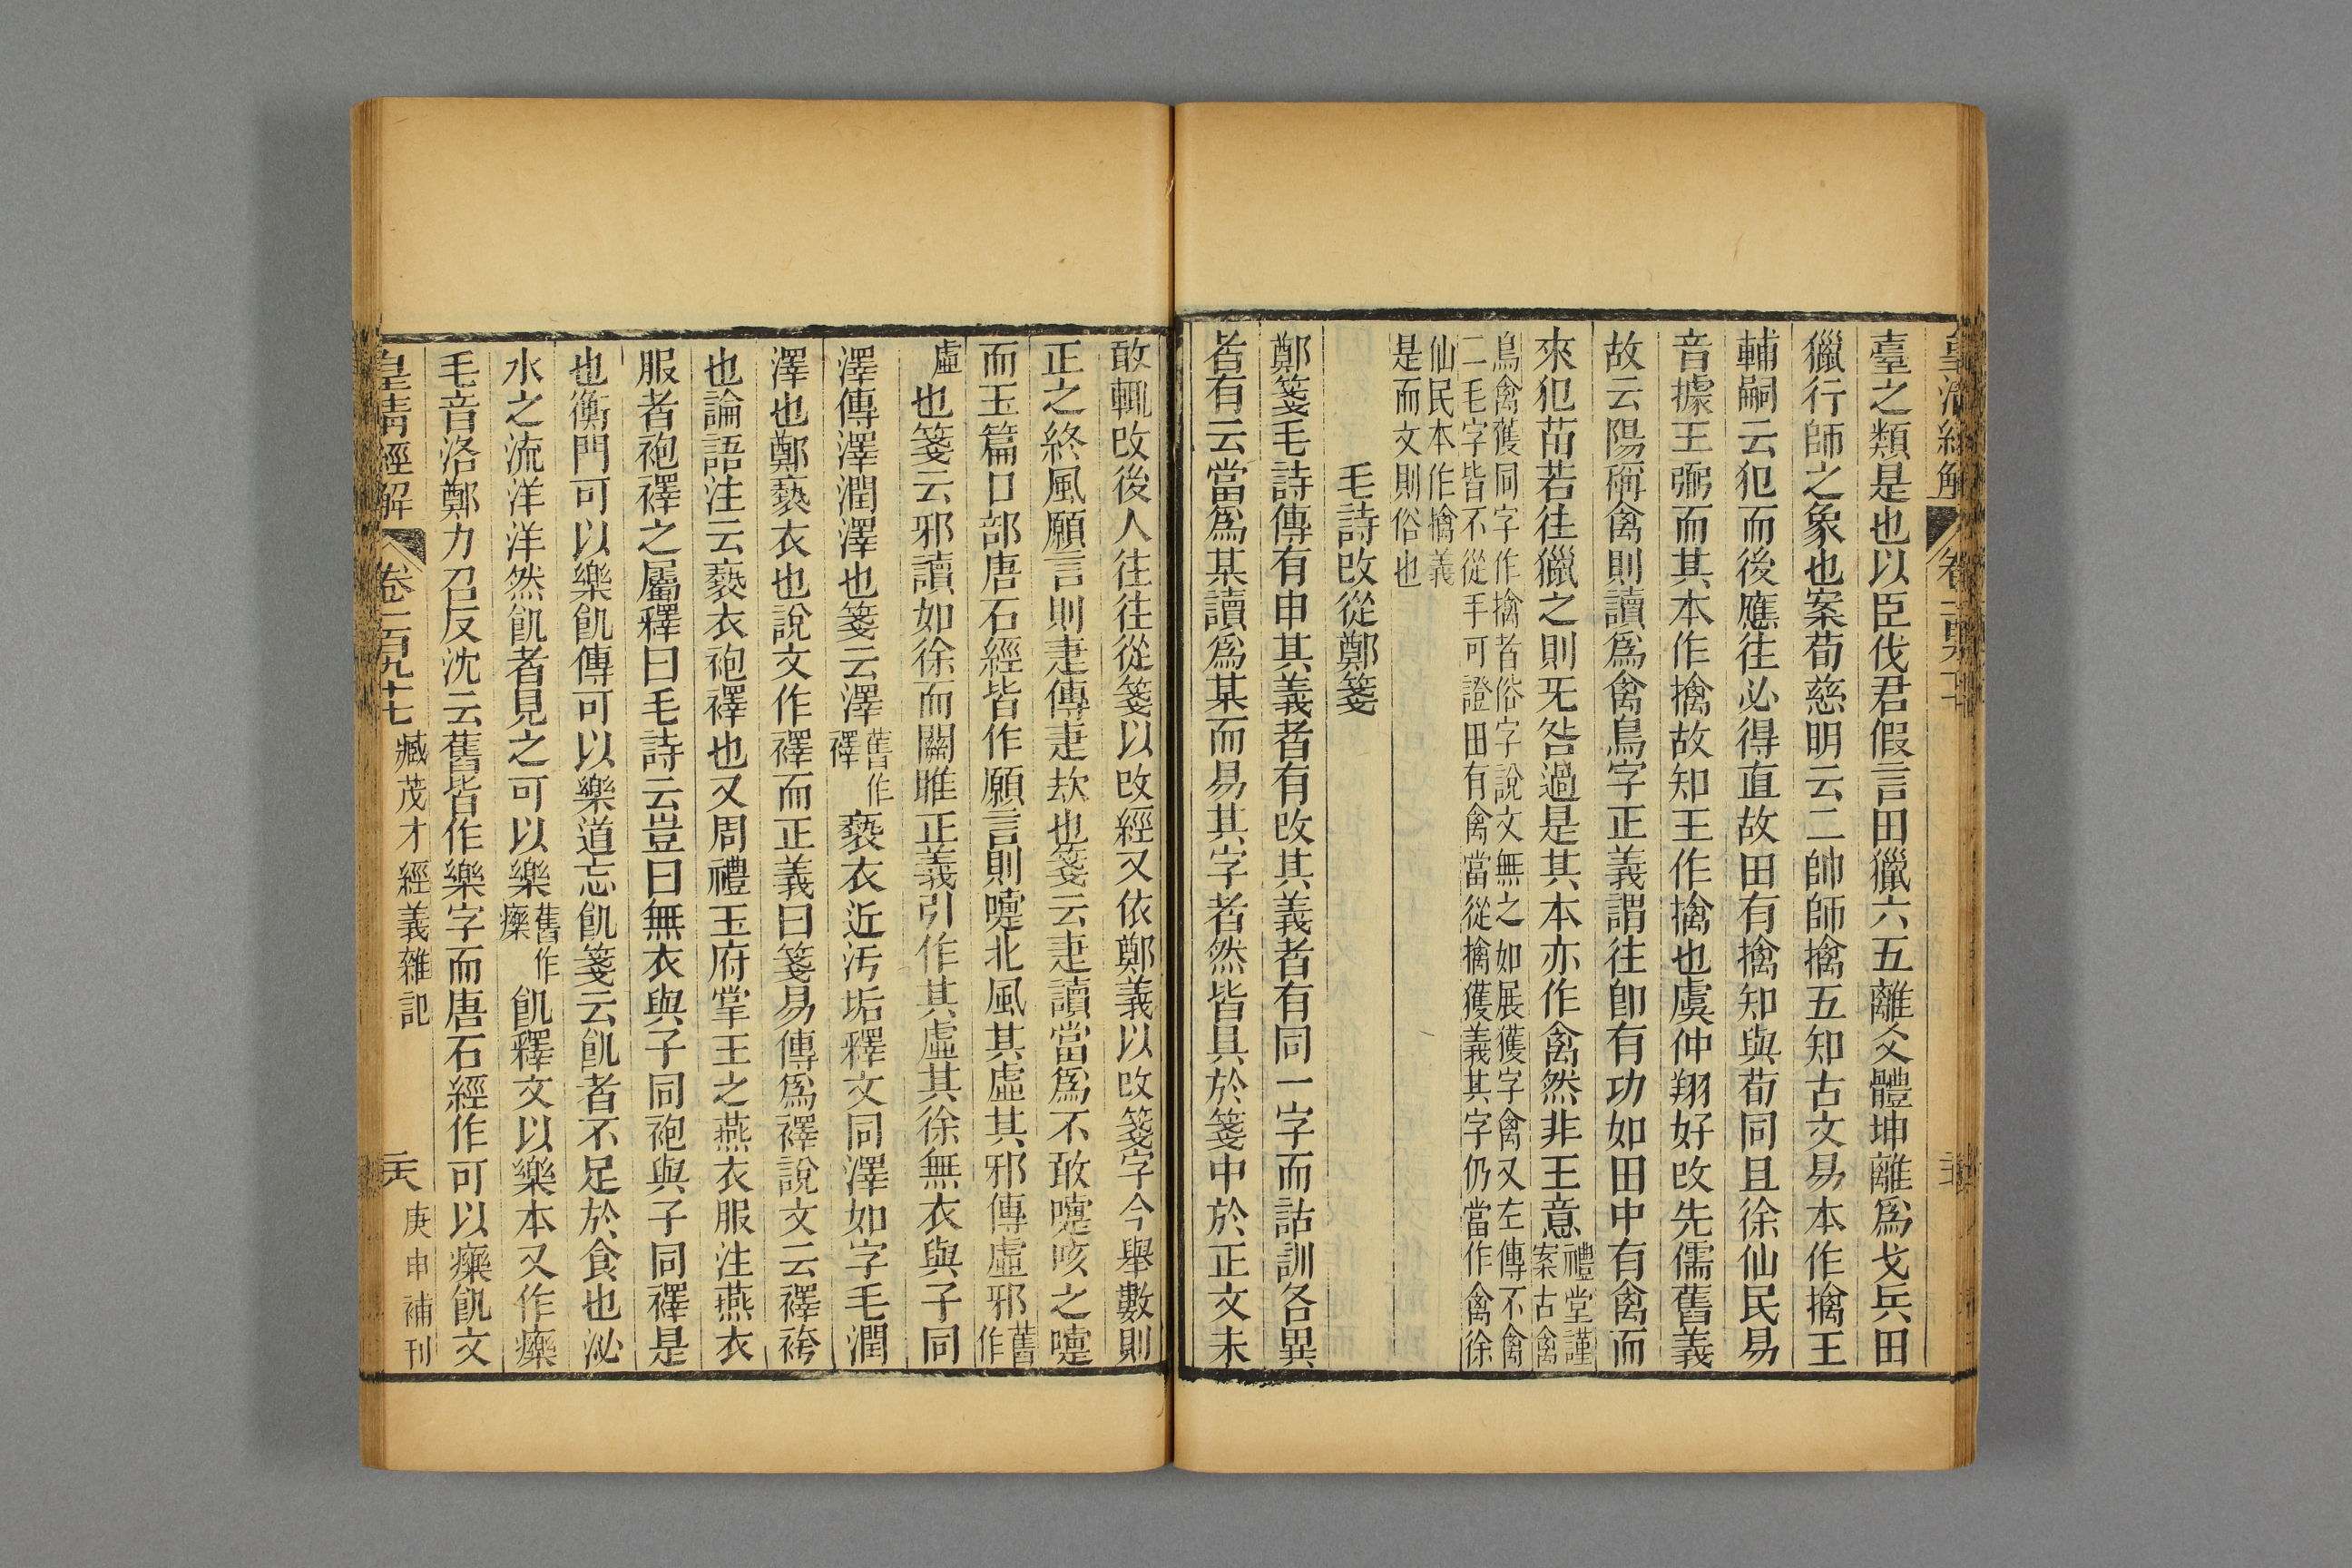 臺之類是也以臣伐君假言田獵六五離爻體坤離爲戈兵田
獵行師之象也案荀慈明云二帥師擒五知古文易本作擒王
輔嗣云犯而後應往必得直故田有擒知與荀同且徐仙民易
音據王弼而其本作擒故知王作擒也虞仲翔好改先儒舊義
故云陽稱禽則讀爲禽鳥字正義謂往卽有功如田中有禽而
來犯苗若往獵之則旡咎過是其本亦作禽然非王意
禮堂謹
案古禽
鳥禽獲同字作擒者俗字說文無之如展獲字禽又左傳不禽
二毛字皆不從手可證田有禽當從擒獲義其字仍當作禽徐
仙民本作擒義
是而文則俗也
毛詩改從鄭箋
鄭箋毛詩傳有申其義者有改其義者有同一字而詁訓各異
者有云當爲某讀爲某而易其字者然皆具於箋中於正文未
敢輒改後人往往從箋以改經又依鄭義以改箋字今舉數則
正之終風願言則疌傳疌欨也箋云疌讀當爲不敢嚏咳之嚏
而玉篇口部唐石經皆作願言則嚏北風其虛其邪傳虛邪
舊
作
虛
也箋云邪讀如徐而關雎正義引作其虛其徐無衣與子同
澤傳澤潤澤也箋云澤
舊作
襗
褻衣近汚垢釋文同澤如字毛潤
澤也鄭褻衣也說文作襗而正義曰箋易傳爲襗說文云襗袴
也論語注云褻衣袍襗也又周禮玉府掌王之燕衣服注燕衣
服者袍襗之屬釋曰毛詩云豈曰無衣與子同袍與子同襗是
也衡門可以樂飢傳可以樂道忘飢箋云飢者不足於食也泌
水之流洋洋然飢者見之可以樂
舊作
𤻲
飢釋文以樂本又作𤻲
毛音洛鄭力召反沈云舊皆作樂字而唐石經作可以𤻲飢文
皇清經解
卷二百九十七
臧茂才經義雜記
庚申補刊